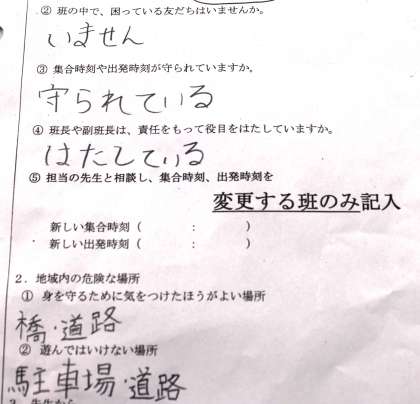 ② 班の中で、困っている友だちはいませんか。
いません
③ 集合時刻や出発時刻が守られていますか。
守られている
④ 班長や副班長は、責任をもって役目をはたしていますか。
はたしている
⑤ 担当の先生と相談し、集合時刻、出発時刻を
変更する班のみ記入
新しい集合時刻（　　　：　　　）
新しい出発時刻（　　　：　　　）
2．地域内の危険な場所
① 身を守るために気をつけたほうがよい場所
橋・道路
② 遊んではいけない場所
駐車場・道路